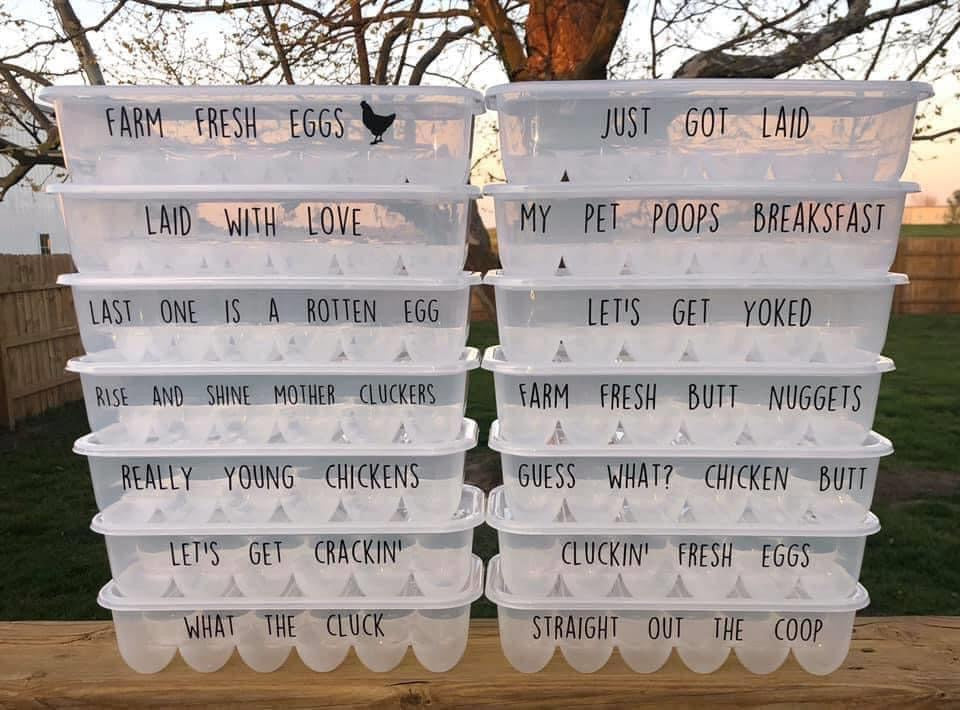 FARM FRESH EGGS
LAID WITH LOVE
LAST ONE IS A ROTTEN EGG
RISE AND SHINE MOTHER CLUCKERS
REALLY YOUNG CHICKENS
LET'S GET CRACKIN'
WHAT THE CLUCK
JUST GOT LAID
MY PET POOPS BREAKSFAST
LET'S GET YOKED
FARM FRESH BUTT NUGGETS
GUESS WHAT? CHICKEN BUTT
CLUCKIN' FRESH EGGS
STRAIGHT OUT THE COOP